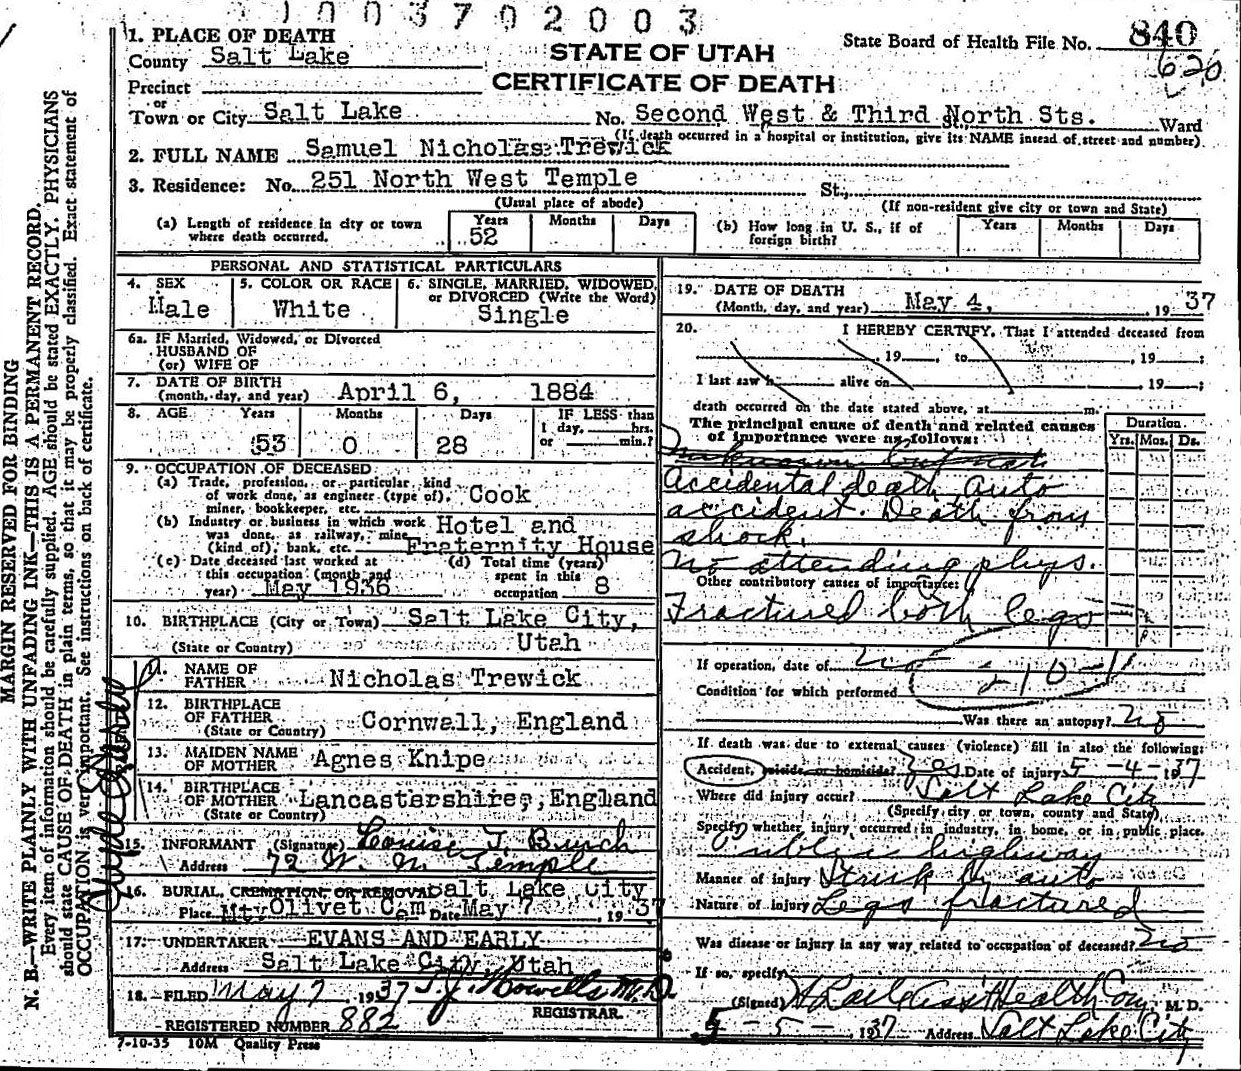 1003702003
1. PLACE OF DEATH
County Salt Lake
Precinct
or
Town or City Salt Lake
STATE OF UTAH
CERTIFICATE OF DEATH
State Board of Health File No. 840
620
No. Second West & Third North Sts. St. Ward
(If death occurred in a hospital or institution, give its NAME insead of street and number)
2. FULL NAME Samuel Nicholas Trewick
3. Residence: No. 251 North West Temple St.,
(Usual place of abode) (If non-resident give city or town and State)
(a) Length of residence in city or town where death occurred. Years 52 Months Days
(b) How long in U. S., if of foreign birth? Years Months Days
PERSONAL AND STATISTICAL PARTICULARS
4. SEX Male
5. COLOR OR RACE White
6. SINGLE, MARRIED, WIDOWED, or DIVORCED (Write the Word) Single
6a. IF Married, Widowed, or Divorced
HUSBAND OF
(or) WIFE OF
7. DATE OF BIRTH
(month, day, and year) April 6, 1884
8. AGE Years 53 Months 0 Days 28 IF LESS than
1 day, hrs.
or min.?
9. OCCUPATION OF DECEASED
(a) Trade, profession, or particular kind
of work done, as engineer (type of), Cook
miner, bookkeeper, etc.
(b) Industry or business in which work
was done, as railway, mine Hotel and
(kind of), bank, etc. Fraternity House
(c) Date deceased last worked at
this occupation (month and
year) May 1936
(d) Total time (years)
spent in this
occupation 8
10. BIRTHPLACE (City or Town) Salt Lake City,
(State or Country) Utah
11. NAME OF
FATHER Nicholas Trewick
12. BIRTHPLACE
OF FATHER Cornwall, England
(State or Country)
13. MAIDEN NAME
OF MOTHER Agnes Knipe
14. BIRTHPLACE
OF MOTHER Lancastershire, England
(State or Country)
15. INFORMANT (Signature) Louise T. Burch
Address 72 W. N. Temple
16. BURIAL, CREMATION, OR REMOVAL Salt Lake City
Place Mt Olivet Cem Date May 7, 1937
17. UNDERTAKER EVANS AND EARLY
Address Salt Lake City, Utah
18. FILED May 7, 1937 T.J. Howells M.D.
REGISTRAR.
REGISTERED NUMBER 882
7-10-35 10M Quality Press
19. DATE OF DEATH
(Month, day, and year) May 4, 1937
20. I HEREBY CERTIFY, That I attended deceased from
, 19 , to , 19 ;
I last saw h alive on , 19 ;
death occurred on the date stated above, at m.
The principal cause of death and related causes
of importance were as follows:
Duration.
Yrs. Mos. Ds.
Accidental death, auto
accident. Death from
shock.
No attending phys.
Other contributory causes of importance:
Fractured both legs
If operation, date of No
210
Condition for which performed
Was there an autopsy? No
If death was due to external causes (violence) fill in also the following:
Accident, suicide or homicide? Yes Date of injury 5-4-1937
Where did injury occur? Salt Lake City
(Specify city or town, county and State)
Specify whether injury occurred in industry, in home, or in public place.
Public highway
Manner of injury Struck by auto
Nature of injury Legs fractured
Was disease or injury in any way related to occupation of deceased? No
If so, specify
(Signed) Asst Health Com, M. D.
5-5-, 1937 Address Salt Lake City
MARGIN RESERVED FOR BINDING
N. B.—WRITE PLAINLY WITH UNFADING INK—THIS IS A PERMANENT RECORD.
Every item of information should be carefully supplied. AGE should be stated EXACTLY. PHYSICIANS
should state CAUSE OF DEATH in plain terms, so that it may be properly classified. Exact statement of
OCCUPATION is very important. See instructions on back of certificate.